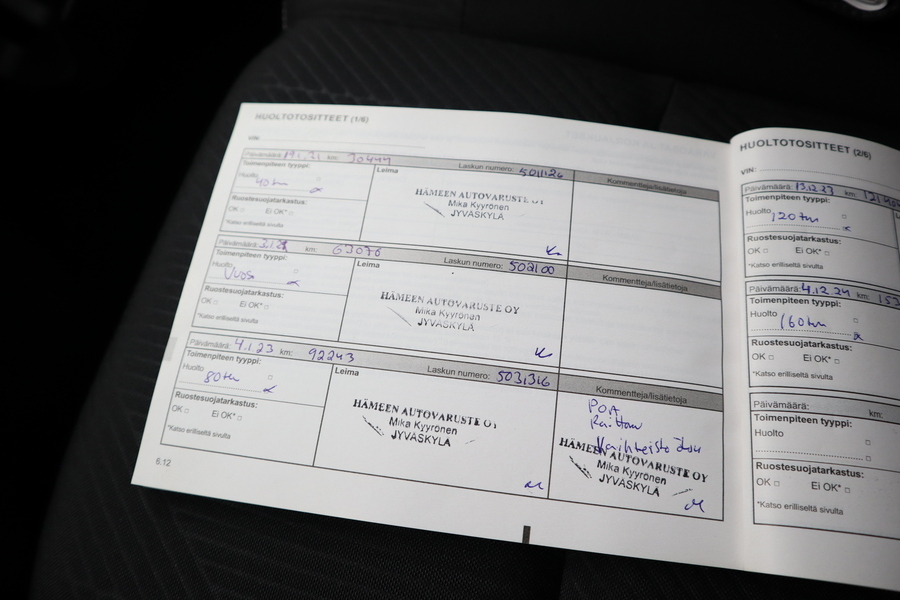 HUOLTOTOSITTEET (1/6)
VIN:
Päivämäärä: km: 30444 Laskun numero: 5011126 Kommentteja/lisätietoja
Toimenpiteen tyyppi: Leima
Huolto 40 tkm
Ruostesuojatarkastus:
OK Ei OK*
*Katso erilliseltä sivulta
HÄMEEN AUTOVARUSTE OY
Mika Kyyrönen
JYVÄSKYLÄ
Päivämäärä: km: 63076 Laskun numero: 502100 Kommentteja/lisätietoja
Toimenpiteen tyyppi: Leima
Huolto Vuosi
Ruostesuojatarkastus:
OK Ei OK*
*Katso erilliseltä sivulta
HÄMEEN AUTOVARUSTE OY
Mika Kyyrönen
JYVÄSKYLÄ
Päivämäärä: 4.1.23 km: 92243 Laskun numero: 5031316 Kommentteja/lisätietoja
Toimenpiteen tyyppi: Leima
Huolto 80 tkm
Ruostesuojatarkastus:
OK Ei OK*
*Katso erilliseltä sivulta
HÄMEEN AUTOVARUSTE OY
Mika Kyyrönen
JYVÄSKYLÄ
POA
Vaihteisto
HÄMEEN AUTOVARUSTE OY
Mika Kyyrönen
JYVÄSKYLÄ
6.12
HUOLTOTOSITTEET (2/6)
VIN:
Päivämäärä: 13.12.23 km:
Toimenpiteen tyyppi:
Huolto 120 tkm
Ruostesuojatarkastus:
OK Ei OK*
*Katso erilliseltä sivulta
Päivämäärä: 4.12.24 km: 153
Toimenpiteen tyyppi:
Huolto 160 tkm
Ruostesuojatarkastus:
OK Ei OK*
*Katso erilliseltä sivulta
Päivämäärä: km:
Toimenpiteen tyyppi:
Huolto
Ruostesuojatarkastus:
OK Ei OK*
*Katso erilliseltä sivulta